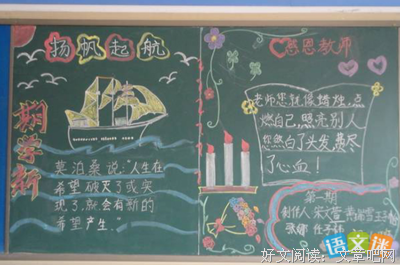 扬帆起航
新学期
莫泊桑说:"人生在
希望破灭了或实
现了,就会有新的
希望产生。"
感恩教师
老师您就像蜡烛,点
燃自己,照亮别人
您熬白了头发,费尽
了心血!
第一期
制作人
语文迷
好文阅读:文章吧网